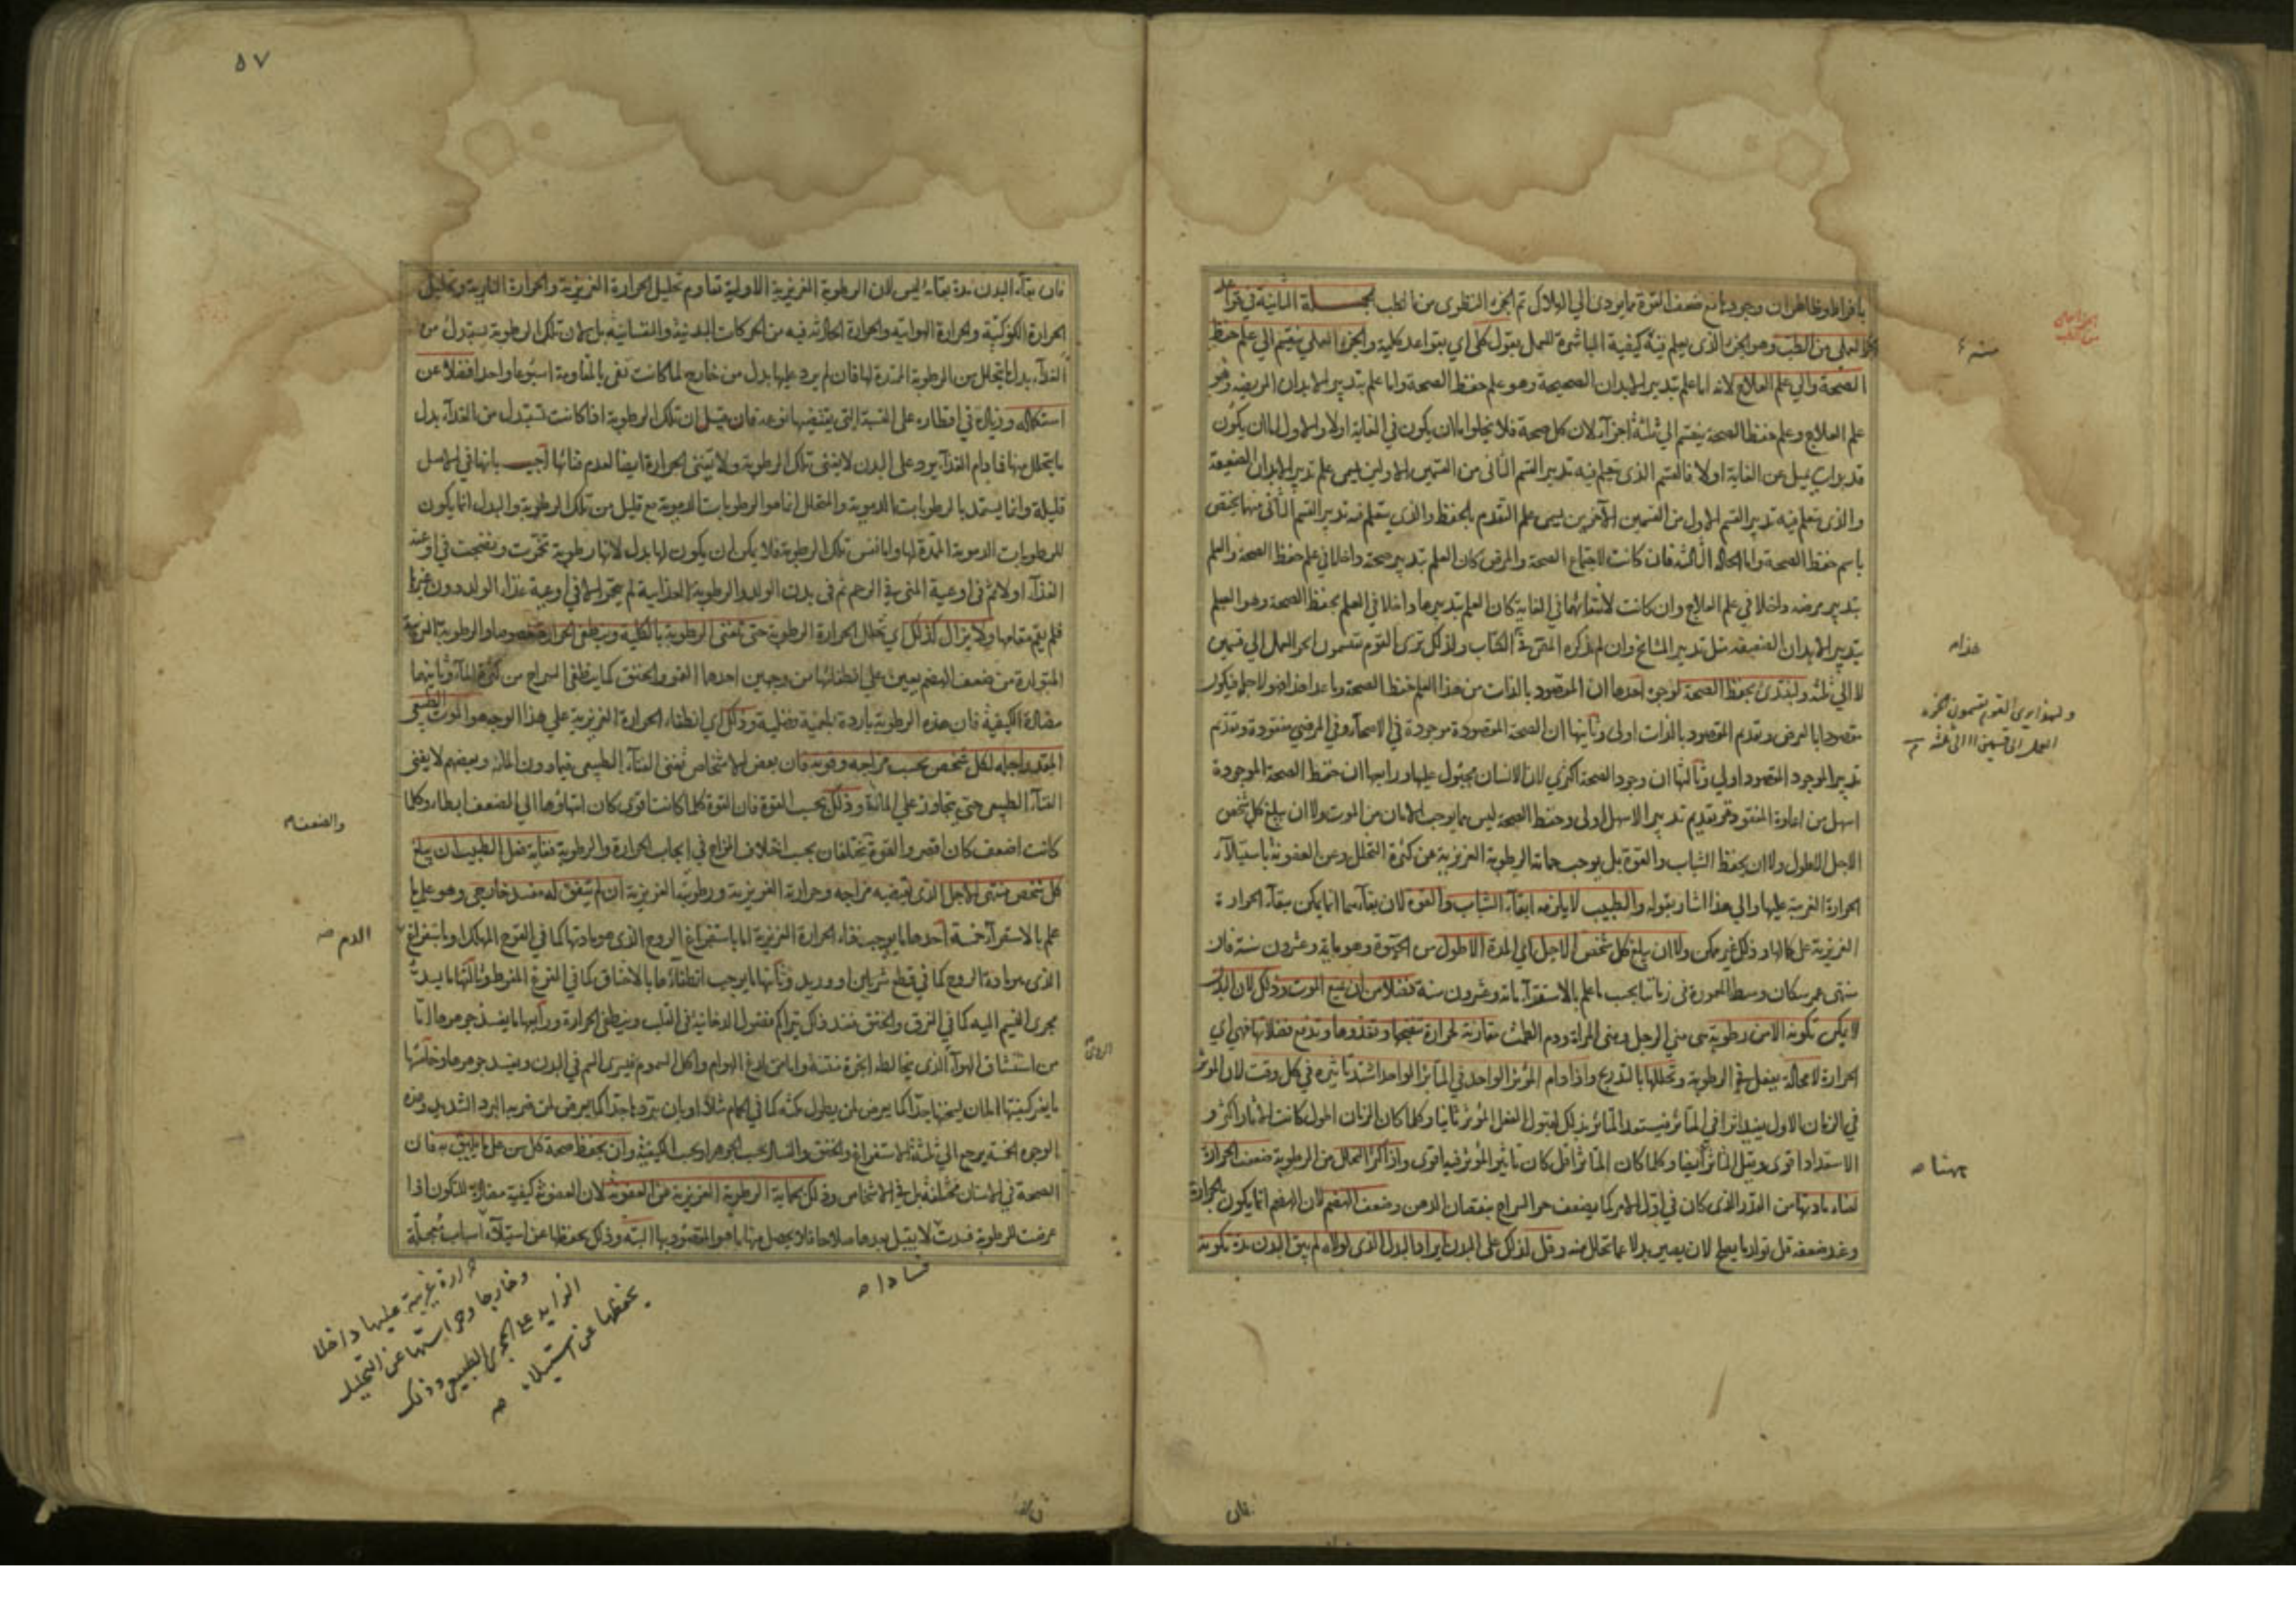 بافراط وظاهر ان وجودها مع ضعف القوة مما يودى الي الهلاك تم الجزء النظرى من الطب الجملة الثانية في قواعد
الجزء العملي من الطب وهو الجزء الذى يعلم فيه كيفية المباشرة للعمل بقول كلى اي بقواعد كلية والجزء العملي ينقسم الي علم حفظ
الصحة والي علم العلاج لانه اما علم بتدبير الابدان الصحيحة وهو علم حفظ الصحة واما علم بتدبير الابدان المريضه وهو
علم العلاج وعلم حفظ الصحة ينقسم الي ثلثة اجزآء لان كل صحة فلا يخلوا اما ان يكون في الغاية اولا والاول اما ان يكون
قد يميل عن الغاية اولا فالقسم الذى يعلم فيه تدبير القسم الثانى من القسمين الاولين يسمى علم تدبير الابدان الضعيفة
والذى يتعلم فيه تدبير القسم الاول من القسمين الآخرين يسمى علم التقدم بالحفظ والذى يتعلم فيه تدبير القسم الثانى منهما يختص
باسم حفظ الصحة واما الحالة الثالثة فان كانت لاجتماع الصحة والمرض كان العلم بتدبير صحته داخلا في علم حفظ الصحة والعلم
بتدبير مرضه داخلا في علم العلاج وان كانت لانتفائهما في الغاية كان العلم بتدبيرها داخلا في العلم بحفظ الصحة وهو العلم
بتدبير الابدان الضعيفة مثل تدبير المشايخ وان لم يذكره المص في الكتاب ولذلك ترى القوم يقسمون الجزء العملي الي قسمين
لا الي ثلثه ولنبتدئ بحفظ الصحة لوجوه احدها ان المقصود بالذات من هذا العلم حفظ الصحة وما عداها فهو لاجلها فيكون
مقصودا بالعرض وتقديم المقصود بالذات اولى وثانيها ان الصحة المقصودة موجودة في الاصحآء وفي المرضي مفقودة وتقديم
تدبير الموجود المقصود اولي وثالثها ان وجود الصحة اكثرى لان الانسان مجبول عليها ورابعها ان حفظ الصحة الموجودة
اسهل من اعادة المفقودة وتقديم تدبير الاسهل اولى وحفظ الصحة ليس مما يوجب الامان من الموت ولا ان يبلغ كل شخص
الاجل الاطول ولا ان يحفظ الشباب والقوة بل يوجب حماية الرطوبة الغريزية عن كثرة التحلل وعن العفونة باستيلآء
الحرارة الغريبة عليها والي هذا اشار بقوله والطبيب لا يلزمه ابقآء الشباب والقوة لان بقآءهما انما يمكن ببقآء الحرارة
الغريزية على كمالها وذلك غير ممكن ولا ان يبلغ كل شخص الاجل اي المدة الاطول من الحيوة وهو مايه وعشرون سنة فان
منتهى عمر سكان وسط المعمورة في زماننا بحسب ما علم بالاستقرآء مائة وعشرون سنة فضلا من ان يمنع الموت وذلك لان البدن
لا يمكن تكونه الا من رطوبة هى مني الرجل ومنى المراة ودم الطمث مقارنة لحرارة تنضجها وتغذوها وتدفع فضلاتها فهي اي
الحرارة لا محالة يفعل في الرطوبة وتحللها بالتدريج واذا دام المؤثر الواحد في المتاثر الواحد اشتد تاثيره في كل وقت لان المؤثر
في الزمان الاول يفيد اثرا في المتاثر فيستعد المتاثر بذلك لقبول الفعل المؤثر ثانيا وكلما كان الزمان اطول كانت الاثار اكثر و
الاستعداد اقوى ويقل المتاثر ايضا وكلما كان المتاثر اقل كان تاثير المؤثر فيه اقوى واذا كثر التحلل من الرطوبة ضعفت الحرارة
لفناء مادتها من القدر الذى كان في اول الامر كما يضعف حر السراج بنقصان الدهن وضعف الهضم لان الهضم انما يكون بالحرارة
وعند ضعفه قل تولد ما يصلح لان يصير بدلا عما تحلل منه وقل لذلك على البدن ايراد البدل الذى لولاه لم يبق البدن مدة تكونه
هذا
ولهذا يرى القوم يقسمون الجزء
العملى الى قسمين لا الى ثلثه
فان
٥٧
فان بقآء البدن مدة بقائه ليس لان الرطوبة الغريزية الاولية تقاوم تحليل الحرارة الغريزية والحرارة النارية وتحليل
الحرارة الكوكبية والحرارة الهوائية والحرارة الحادثة فيه من الحركات البدنية والنفسانية بل لان تلك الرطوبة يستبدل من
الغذآء بدل ما يتحلل من الرطوبة الممدة لها فان لم يرد عليها بدل من خارج لما كانت تفى بالمقاومة اسبوعا واحدا فضلا عن
استكماله وزيادة في اقطاره على النسبة التى يقتضيها نوعه فان قيل ان تلك الرطوبة اذا كانت تستبدل من الغذآء بدل
ما يتحلل منها فما دام الغذآء يرد على البدن لا يفنى تلك الرطوبة ولا يفنى الحرارة ايضا لعدم فنائها اجيب بانها في الاصل
قليلة وانما يستمد بالرطوبات الدموية والمتحلل انما هو الرطوبات الدموية مع قليل من تلك الرطوبة والبدل انما يكون
للرطوبات الدموية الممدة لها واما نفس تلك الرطوبة فلا يمكن ان يكون لها بدل لانها رطوبة تخمرت ونضجت في اوعية
الغذآء اولا ثم فى اوعية المنى ثم في الرحم ثم فى بدن الوالد والرطوبة الغذائية لم يتخمر الا في اوعية غذاء الوالد دون غيرها
فلم يقم مقامها ولا يزال كذلك اي تحلل الحرارة الرطوبة حتى تفنى الرطوبة بالكلية وينطفى الحرارة خصوصا والرطوبة الغريبة
المتولدة من ضعف الهضم يعين على انطفائها من وجهين احدهما الغمر والخنق كما ينطفى السراج من كثرة المآء وثانيهما
مضادة الكيفية فان هذه الرطوبة باردة بلغمية فضلية وذلك اي انطفاء الحرارة الغريزية علي هذا الوجه هو الموت الطبيعي
المقدر اجله لكل شخص بحسب مزاجه وقوته فان بعض الاشخاص يفنى الفنآء الطبيعى فيما دون المائة وبعضهم لا يفنى
الفنآء الطبيعى حتى يتجاوز علي المائة وذلك بحسب القوة فان القوة كلما كانت اقوى كان انتهاؤها الي الضعف ابطاء وكلما
كانت اضعف كان اقصر والقوة تختلفان بحسب اختلاف المزاج في ايجاب الحرارة والرطوبة فغاية فعل الطبيب ان يبلغ
كل شخص منتهى الاجل الذى يقتضيه مزاجه وحرارته الغريزية ورطوبته الغريزية ان لم يتفق له مفسد خارجى وهو علي ما
علم بالاستقرآء خمسة احدها ما يوجب فناء الحرارة الغريزية اما باستفراغ الروح الذى هو مادتها كما في الفرح المهلك او باستفراغ
الذى هو مادة الروح كما في قطع شريان او وريد وثانيها ما يوجب انطفاءها بالاختناق كما في الفزع المفرط وثالثها ما يسد
مجرى النسيم اليه كما في الغرق والخنق فعند ذلك يتراكم فضول الدخانية في القلب وينطفى الحرارة ورابعها ما يفسد جوهرها اما
من استنشاق الهوآء الذى يخالطه ابخرة نتنة واما من لدغ الهوام واكل السموم فيسرى السم في البدن ويفسد جوهرها وخامسها
ما يغير كيفيتها اما بان يسخنها جدا كما يعرض لمن يطول مكثه كما في الحمام مثلا او بان يبردها جدا كما يعرض لمن ضربه البرد الشديد وهذه
الوجوه الخمسة يرجع الي ثلثة الاستفراغ والخنق والفساد بحسب الجوهر او بحسب الكيفية وان يحفظ صحة كل سن على ما يليق به فان
الصحة في الاسنان مختلفة بل في الاشخاص وذلك بحماية الرطوبة الغريزية من العفونة لان العفونة كيفية مضادة للتكون اذا
عرضت للرطوبة فسدت لا يقبل بعدها صلاحا فلا يحصل منها ما هو المقصود بها البتة وذلك بحفظها عن استيلآء اسباب معجلة
والضعف
الدم
فسادا
حرارة غريبة عليها داخلا
وخارجا وحراستها عن التحليل
الزايد على المجرى الطبيعى وذلك
بحفظها عن استيلاء